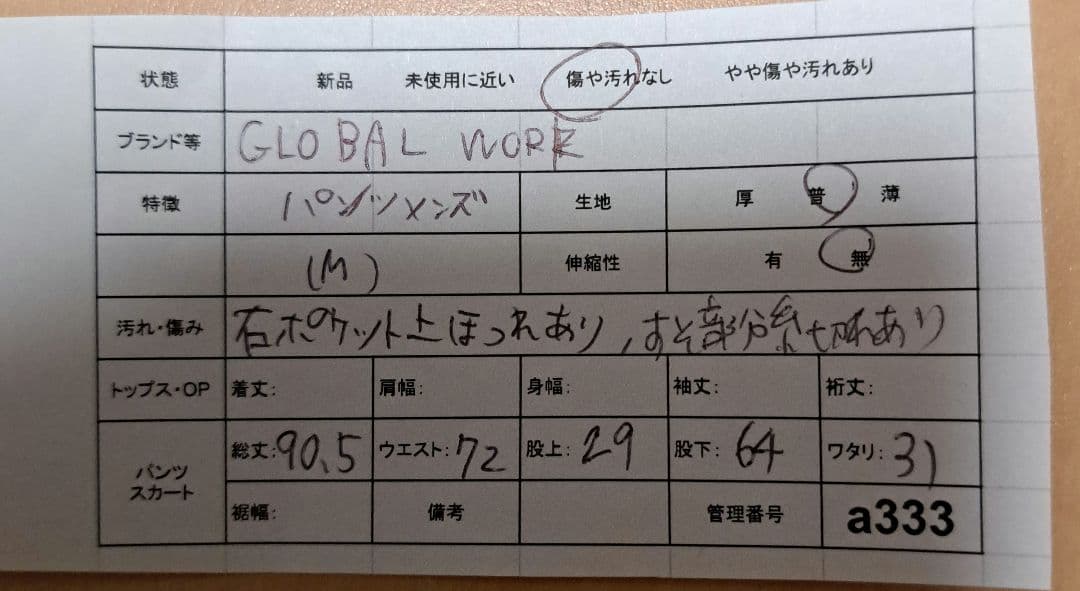 状態 新品 未使用に近い 傷や汚れなし やや傷や汚れあり
ブランド等 GLOBAL WORK
特徴 パンツメンズ 生地 厚 普 薄
(M) 伸縮性 有 無
汚れ・傷み 右ポケット上ほつれあり、すそ部分糸切れあり
トップス・OP 着丈: 肩幅: 身幅: 袖丈: 裄丈:
パンツ スカート 総丈:90.5 ウエスト:72 股上:29 股下:64 ワタリ:31
裾幅: 備考 管理番号 a333